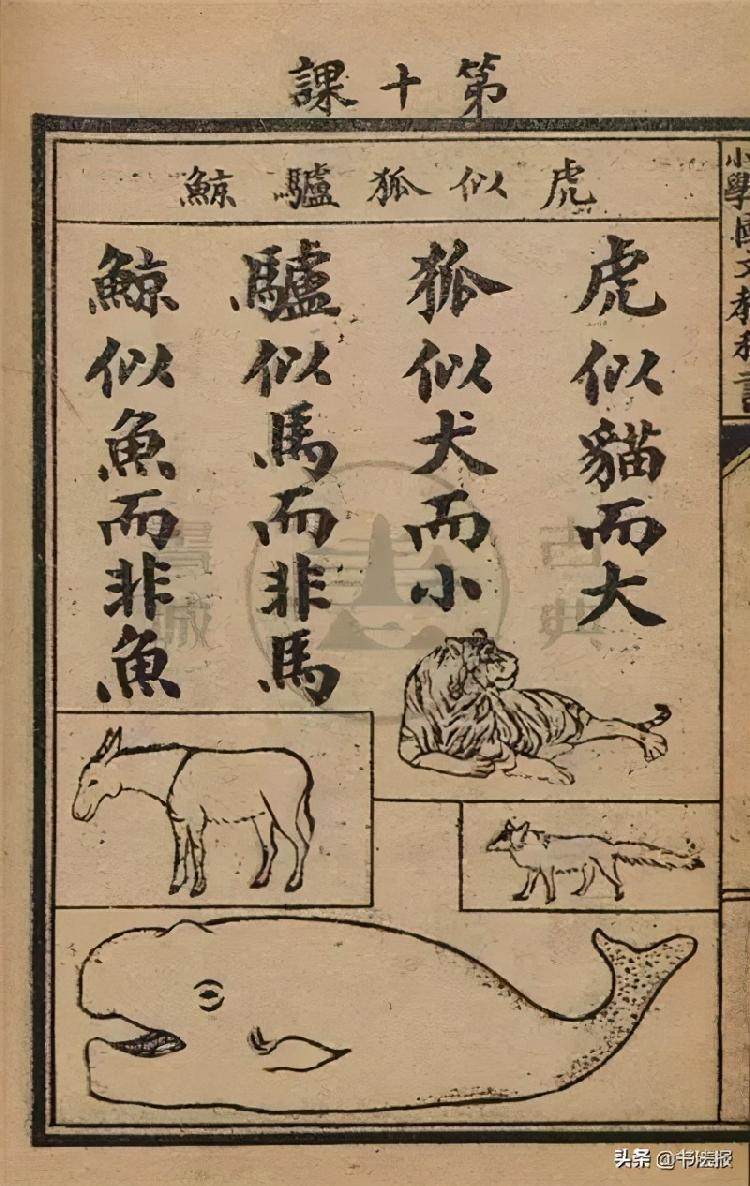 第十課
虎似狐驢鯨
虎似貓而大
狐似犬而小
驢似馬而非馬
鯨似魚而非魚
小學國文教科書
古典書城
头条 @书法报